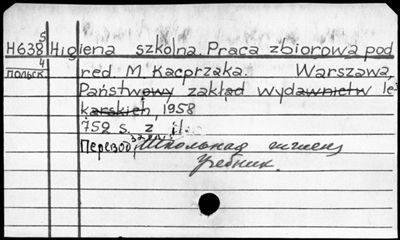 5
H638 Higiena szkolna. Praca zbiorowa pod
4
польск red. M. Kacprzaka. Warszawa,
Państwowy zakład wydawnictw le-
karskich, 1958
752 s. z il.
Перевод: Школьная гигиена
Учебник.